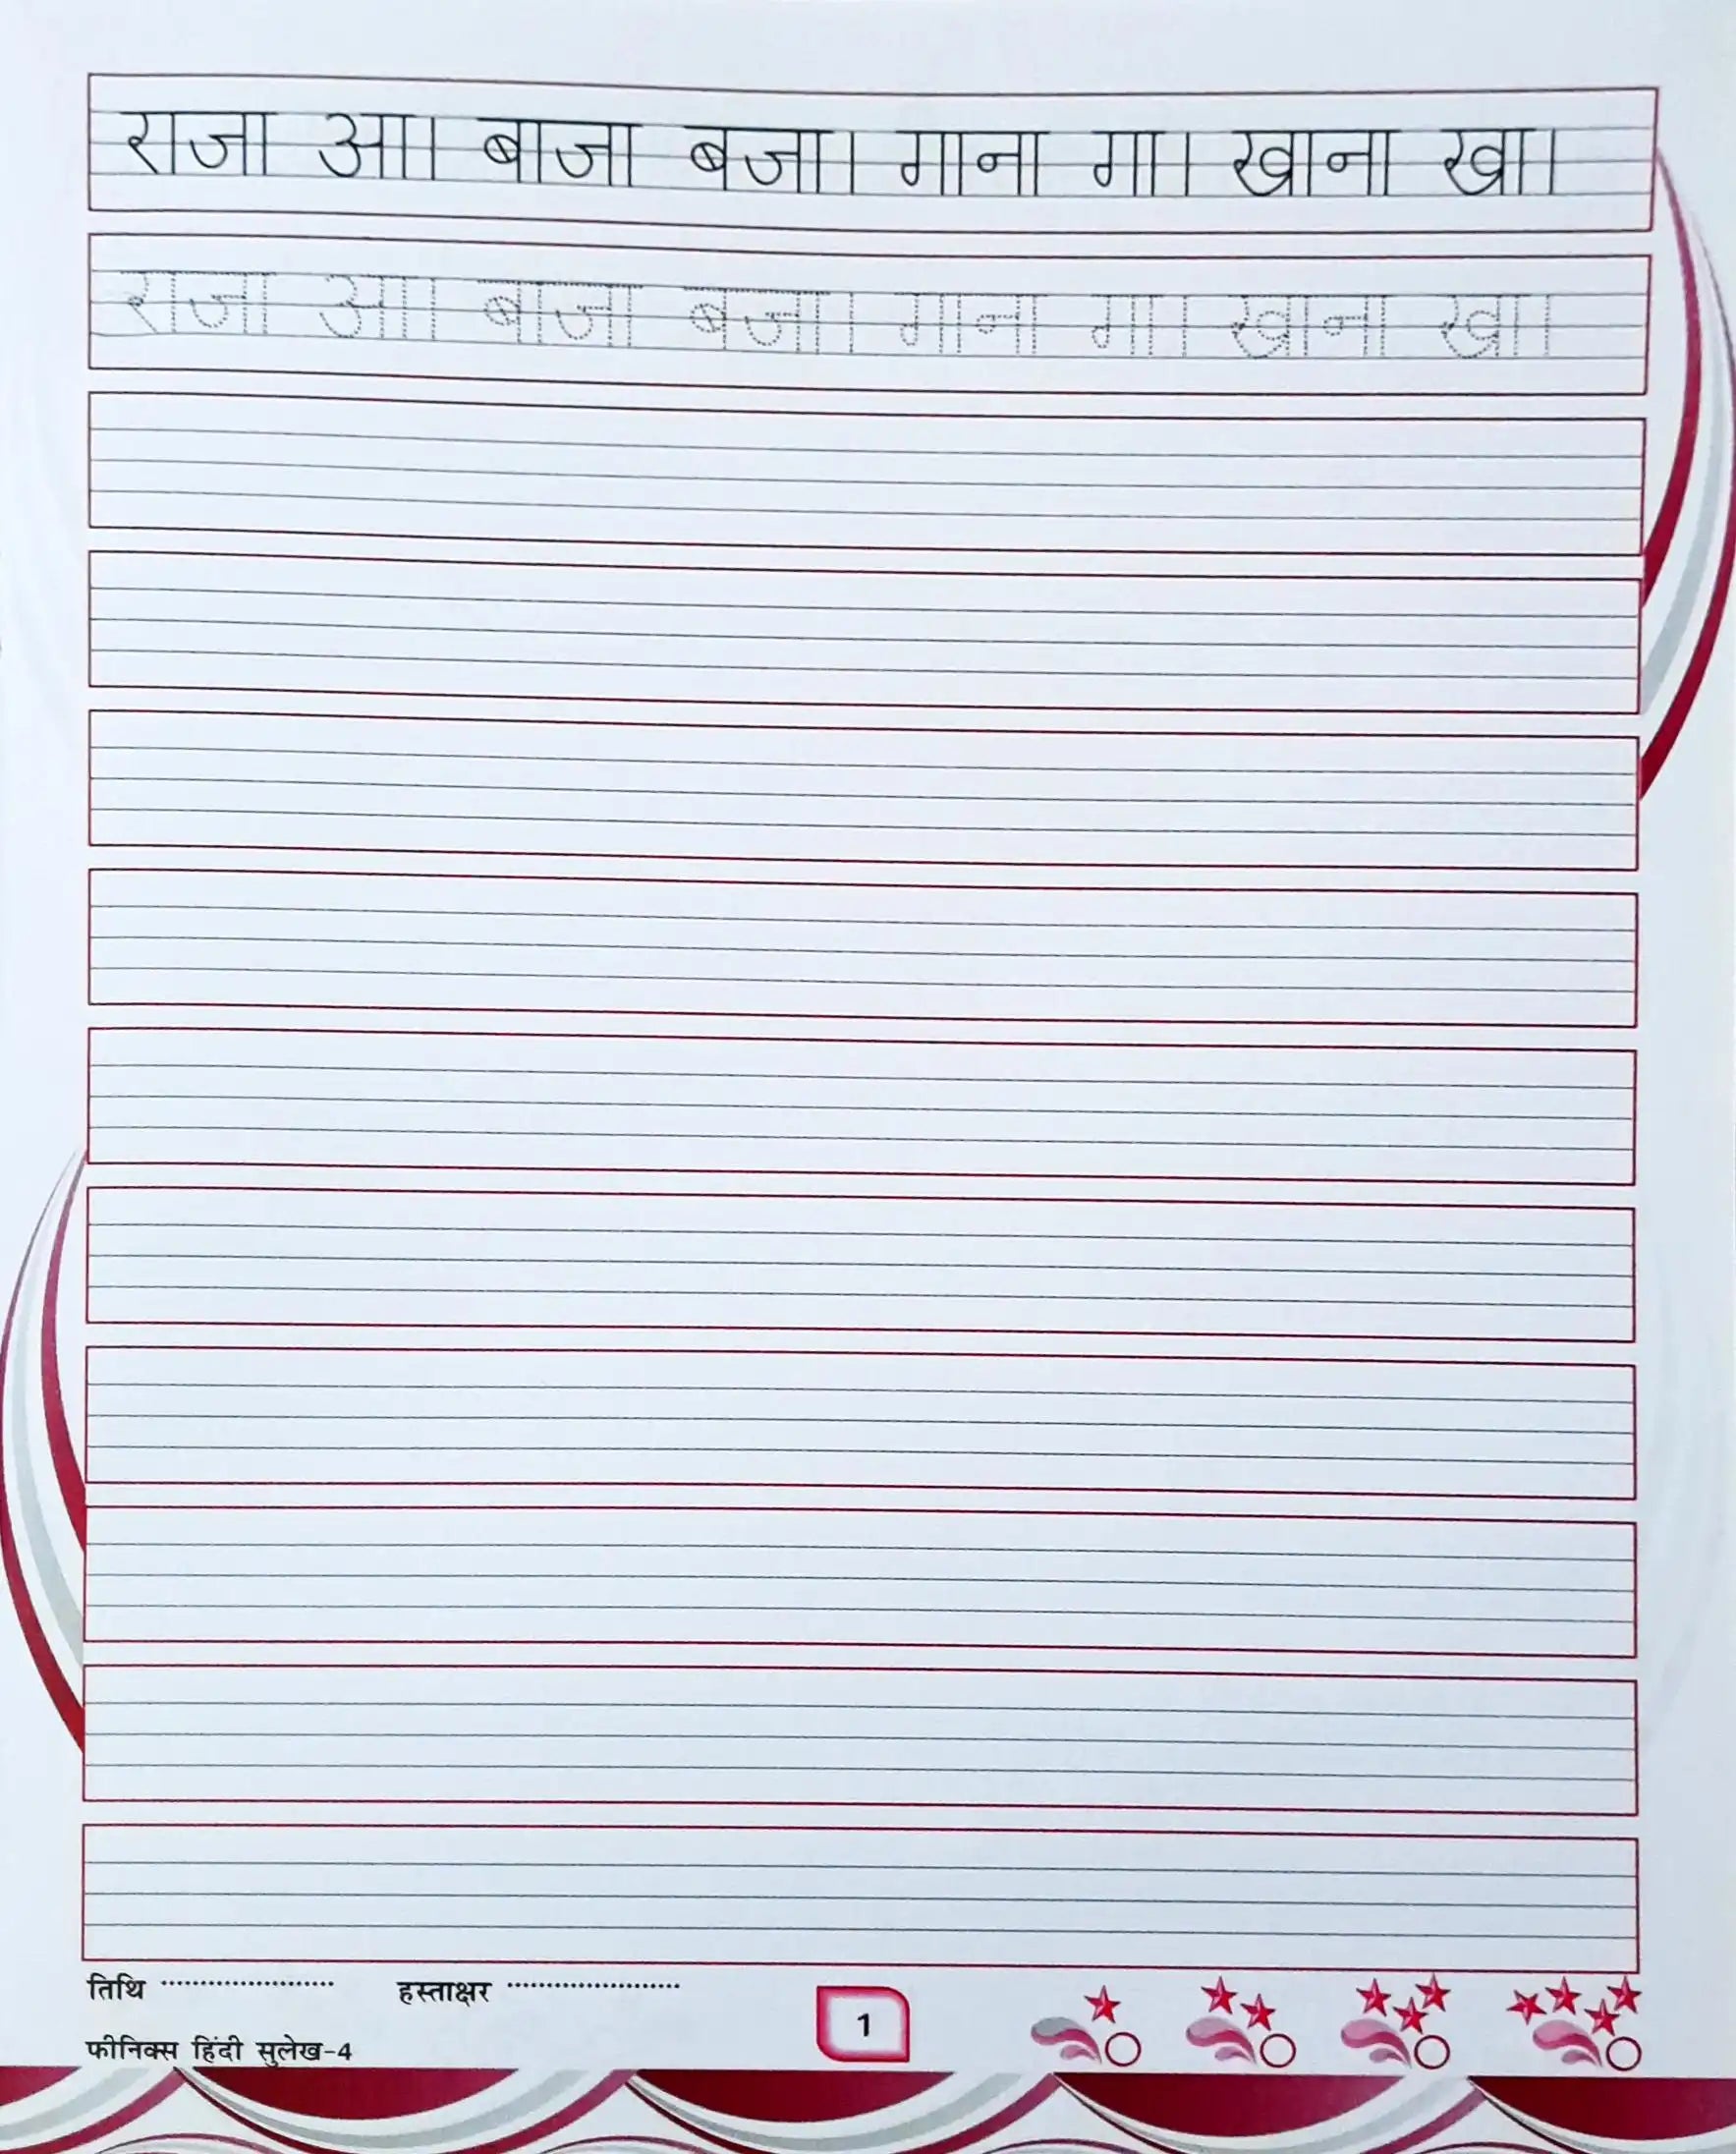 राजा आ। बाजा बजा। गाना गा। खाना खा।
राजा आ। बाजा बजा। गाना गा। खाना खा।
तिथि ...................... हस्ताक्षर ......................
1
फीनिक्स हिंदी सुलेख-4